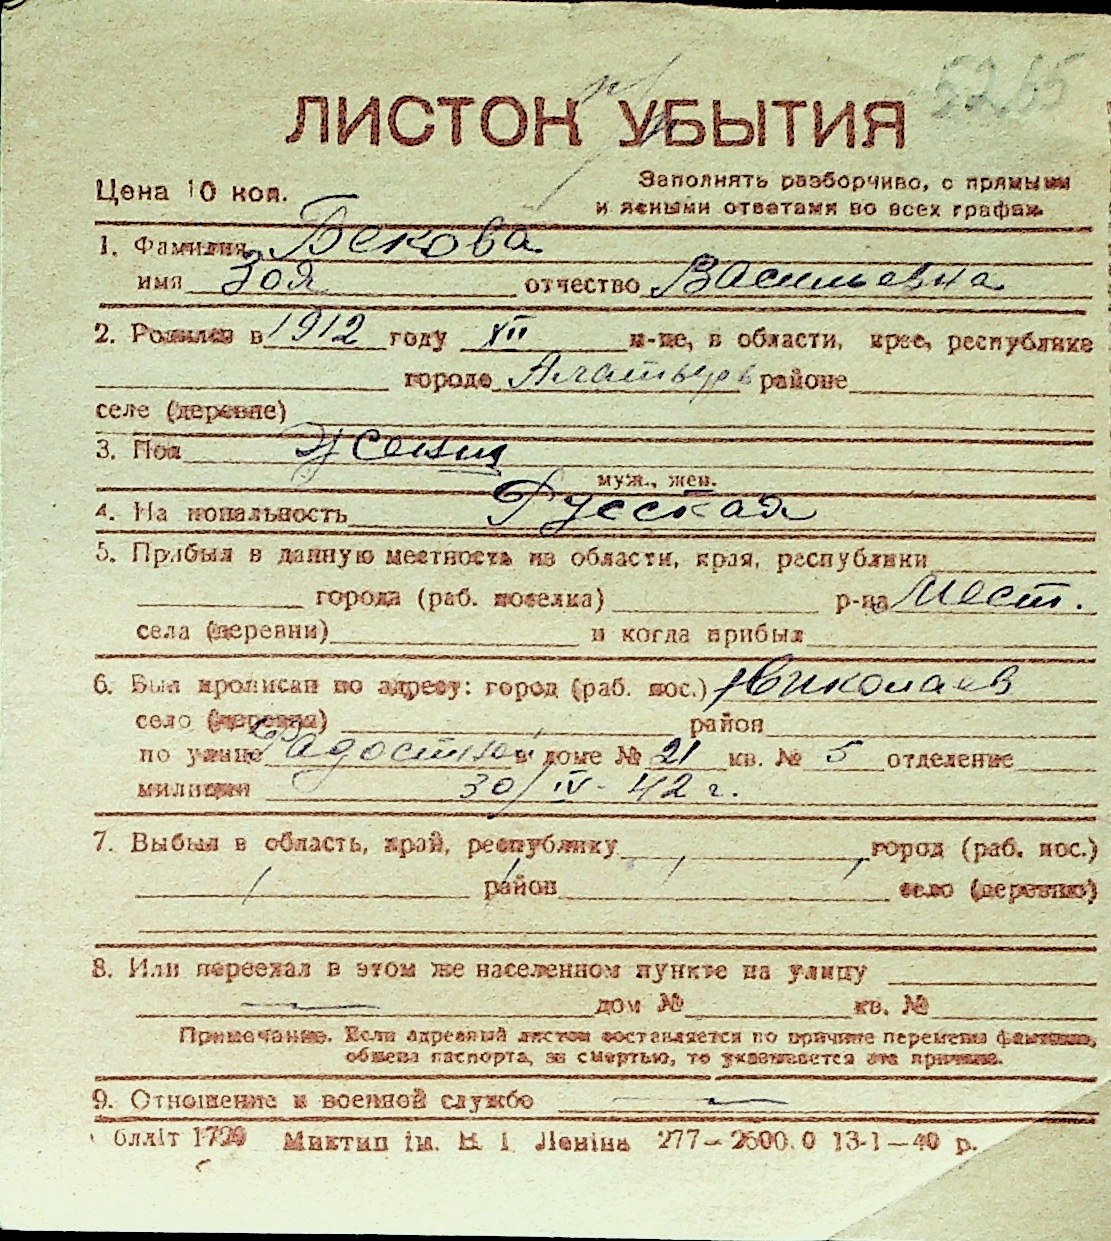 5265
ЛИСТОК УБЫТИЯ
Цена 10 коп.
Заполнять разборчиво, с прямыми
и ясными ответами во всех графах.
1. Фамилия Бекова
имя Зоя отчество Васильевна
2. Родился в 1912 году XII м-це, в области, крае, республике
городе Алатырь районе
селе (деревне)
3. Пол Женщ
муж., жен.
4. Национальность Русская
5. Прибыл в данную местность из области, края, республики
города (раб. поселка) р-на Мест.
села (деревни) и когда прибыл
6. Был прописан по адресу: город (раб. пос.) Николаев
село (деревня) район
по улице Радостной доме № 21 кв. № 5 отделение
милиции 30/IV-42 г.
7. Выбыл в область, край, республику город (раб. пос.)
район село (деревню)
8. Или переехал в этом же населенном пункте на улицу
— дом № кв. №
Примечание. Если адресный листок составляется по причине перемены фамилии,
обмена паспорта, за смертью, то указывается эта причина.
9. Отношение к военной службе —
блліт 1790 Миктип ім. В. І. Леніна 277—2500.0 13-1—40 р.